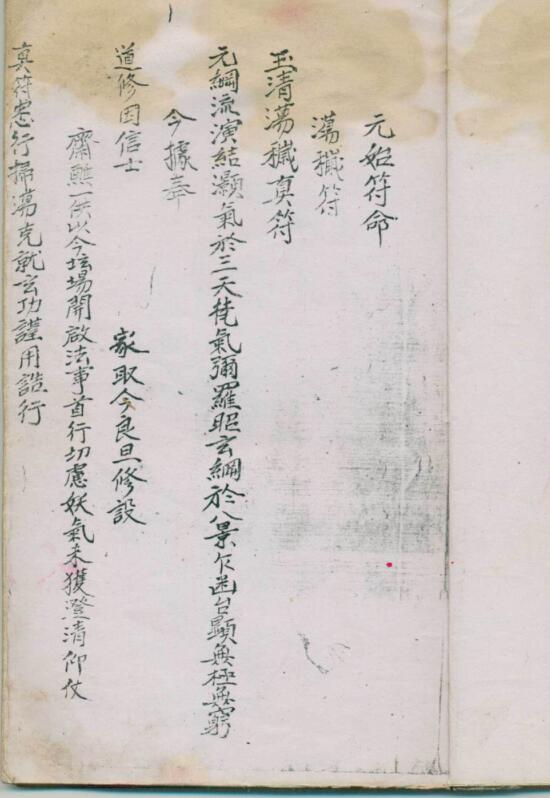 元始符命
蕩穢符
玉清蕩穢真符
元綱流演結灝氣於三天梵氣彌羅昭玄綱於八景乍函台顯無極無窮
今據奉
道修因信士 家取今良旦修設
齋醮一供以今坛場開啟法事首行切慮妖氣未獲澄清仰仗
真符悉行掃蕩克就玄功謹用誥行